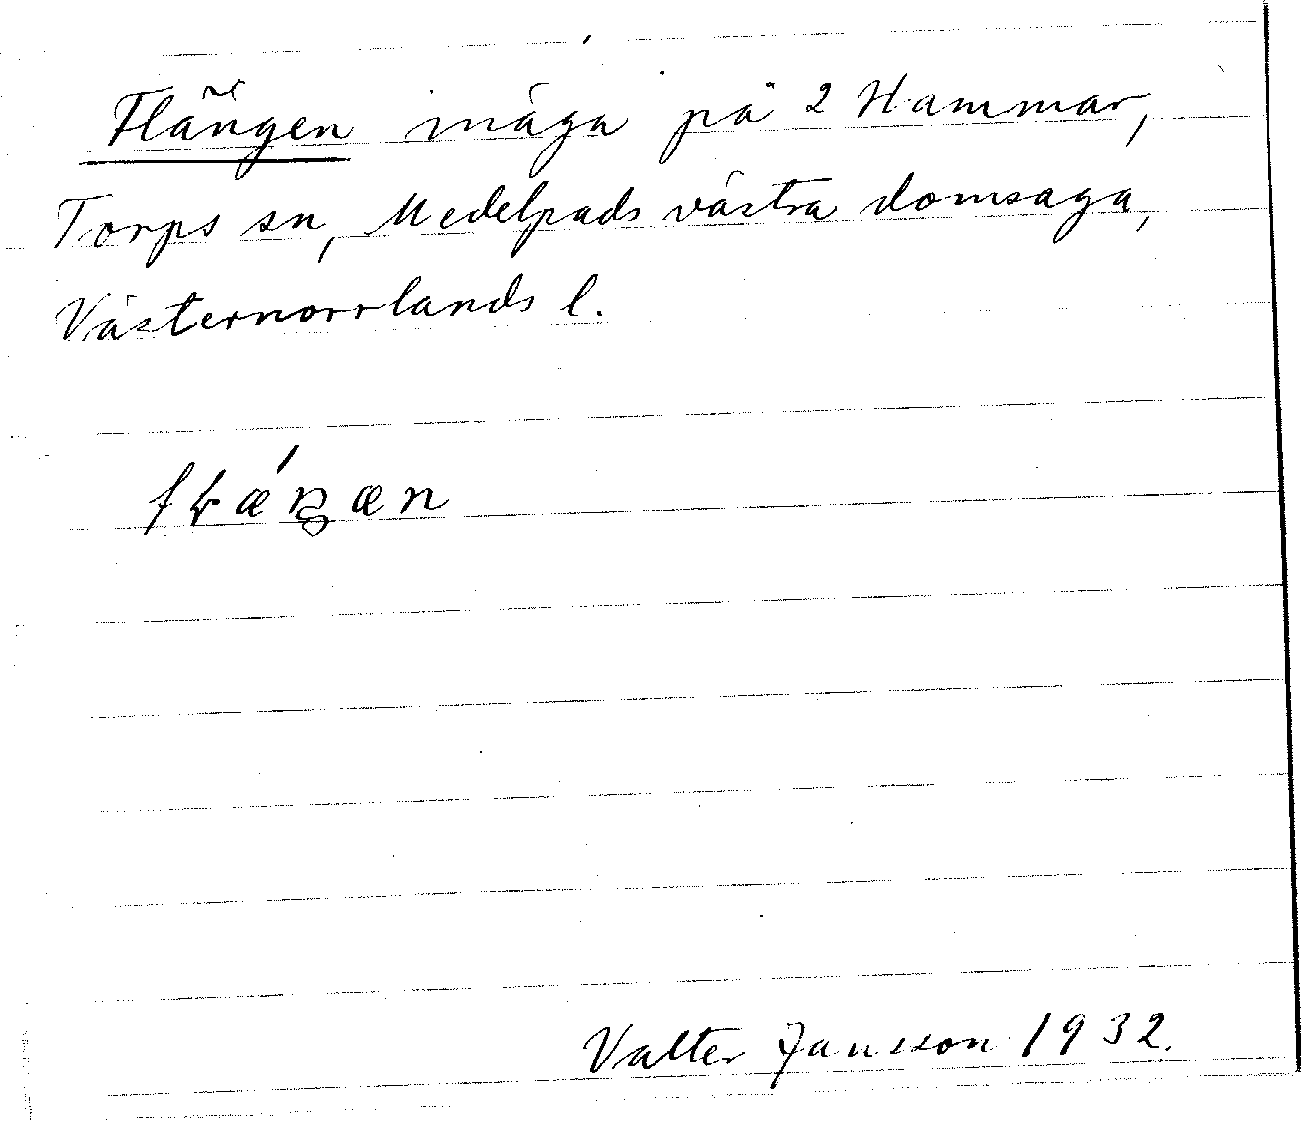 Flängen mäga på 2 Hammar,
Torps sn, Medelpads västra domsaga,
Västernorrlands l.
Valter Jansson 1932.